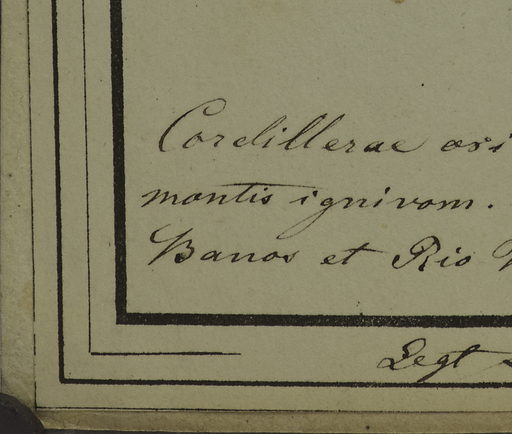 Cordillerae ori
montis ignivom.
Banos et Rio
Legt